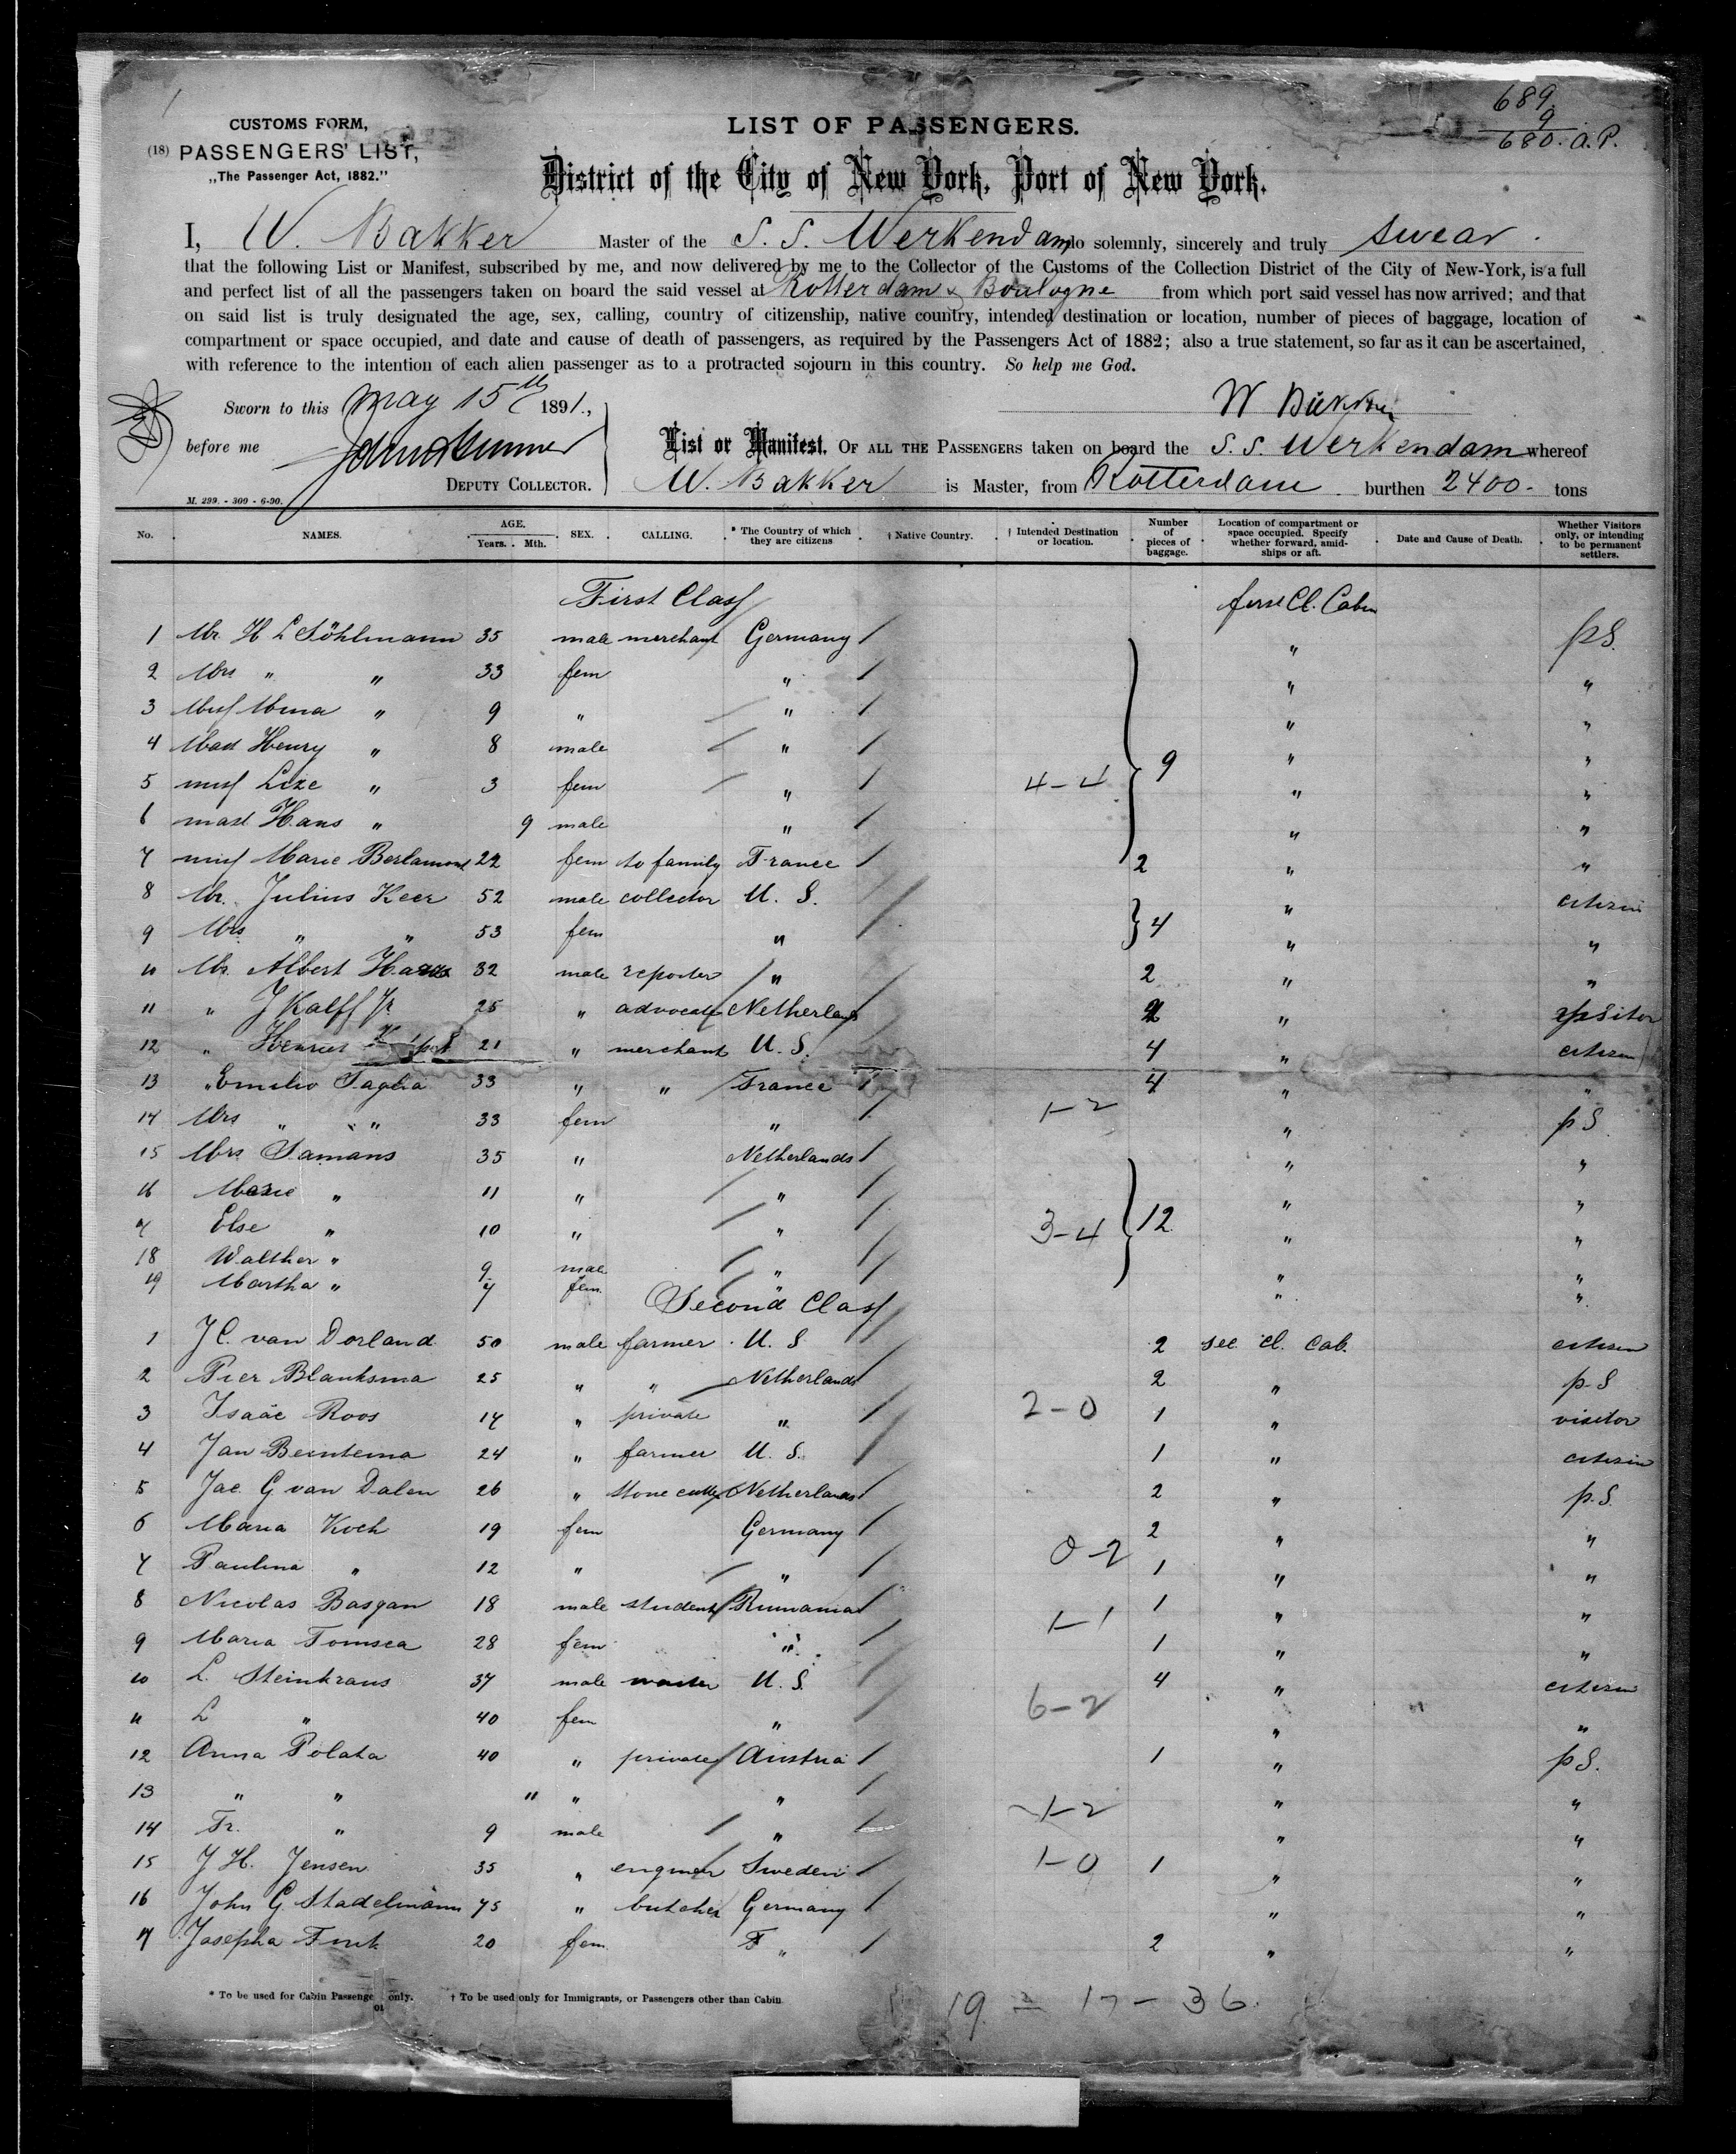 689
9
680. a.P.
CUSTOMS FORM,
(18) PASSENGERS' LIST,
„The Passenger Act, 1882."
LIST OF PASSENGERS.
District of the City of New York, Port of New York.
I, W. Bakker Master of the S. S. Werkendam do solemnly, sincerely and truly swear.
that the following List or Manifest, subscribed by me, and now delivered by me to the Collector of the Customs of the Collection District of the City of New-York, is a full
and perfect list of all the passengers taken on board the said vessel at Rotterdam & Boulogne from which port said vessel has now arrived; and that
on said list is truly designated the age, sex, calling, country of citizenship, native country, intended destination or location, number of pieces of baggage, location of
compartment or space occupied, and date and cause of death of passengers, as required by the Passengers Act of 1882; also a true statement, so far as it can be ascertained,
with reference to the intention of each alien passenger as to a protracted sojourn in this country. So help me God.
Sworn to this May 15th 1891.,
W Bakker
before me
List or Manifest, OF ALL THE PASSENGERS taken on board the S. S. Werkendam whereof
DEPUTY COLLECTOR. W. Bakker is Master, from Rotterdam burthen 2400- tons
M. 299. - 300 - 6-90.
No. NAMES. AGE. Years. Mth. SEX. CALLING. * The Country of which they are citizens † Native Country. † Intended Destination or location. Number of pieces of baggage. Location of compartment or space occupied. Specify whether forward, amidships or aft. Date and Cause of Death. Whether Visitors only, or intending to be permanent settlers.
First Class first Cl. Cabin
1 Mr. H L Söhlmann 35 male merchant Germany / " pS.
2 Mrs " " 33 fem " / " "
3 Miss Mina " 9 " " / " "
4 Mast Henry " 8 male " / 9 " "
5 miss Lize " 3 fem " / 4-4 " "
6 mast Hans " 9 male " / " "
7 miss Marie Berlamont 22 fem to family France / 2 " "
8 Mr. Julius Keer 52 male collector U. S. / " citizen
9 Mrs " " 53 fem " / 4 " "
10 Mr. Albert 32 male reporter " / 2 " "
11 " J Kalff Jr 25 " advocate Netherlands / 2 "
12 " 21 " merchant U. S. / 4 " citizen
13 " Emilio Taglia 33 " " France / 4 " "
14 Mrs " " 33 fem " / 1-2 " pS
15 Mrs Samans 35 " Netherlands / " "
16 Marie " 11 " " / " "
17 Else " 10 " " / 3-4 12 " "
18 Walther " 9 male " / " "
19 Martha " 7 fem. " / " "
Second Class
1 J C. van Dorland 50 male farmer U. S 2 sec. cl. Cab. citizen
2 Pier Blanksma 25 " " Netherlands / 2 " p.S
3 Isaäc Roos 17 " private " / 2-0 1 " visitor
4 Jan Beintema 24 " farmer U. S. / 1 " citizen
5 Jac. G van Dalen 26 " stone cutter Netherlands / 2 " p.S.
6 Maria Koch 19 fem Germany / 2 " "
7 Paulina " 12 " " / 0-2 1 " "
8 Nicolas Basgan 18 male student Rumania / 1-1 1 " "
9 Maria Tomsca 28 fem " / 1 " "
10 L. Steinkraus 37 male U. S. / 4 " citizen
11 L " 40 fem " / 6-2 " "
12 Anna Polata 40 " private Austria / 1 " pS.
13 " " 11 " " / 1-2 " "
14 Fr. " 9 male " / " "
15 J H. Jensen 35 " engineer Sweden / 1-0 1 " "
16 John G Stadelmann 75 " butcher Germany / " "
17 Josepha Fink 20 fem. " / 2 " "
* To be used for Cabin Passenge only. † To be used only for Immigrants, or Passengers other than Cabin
19 = 17 - 36.